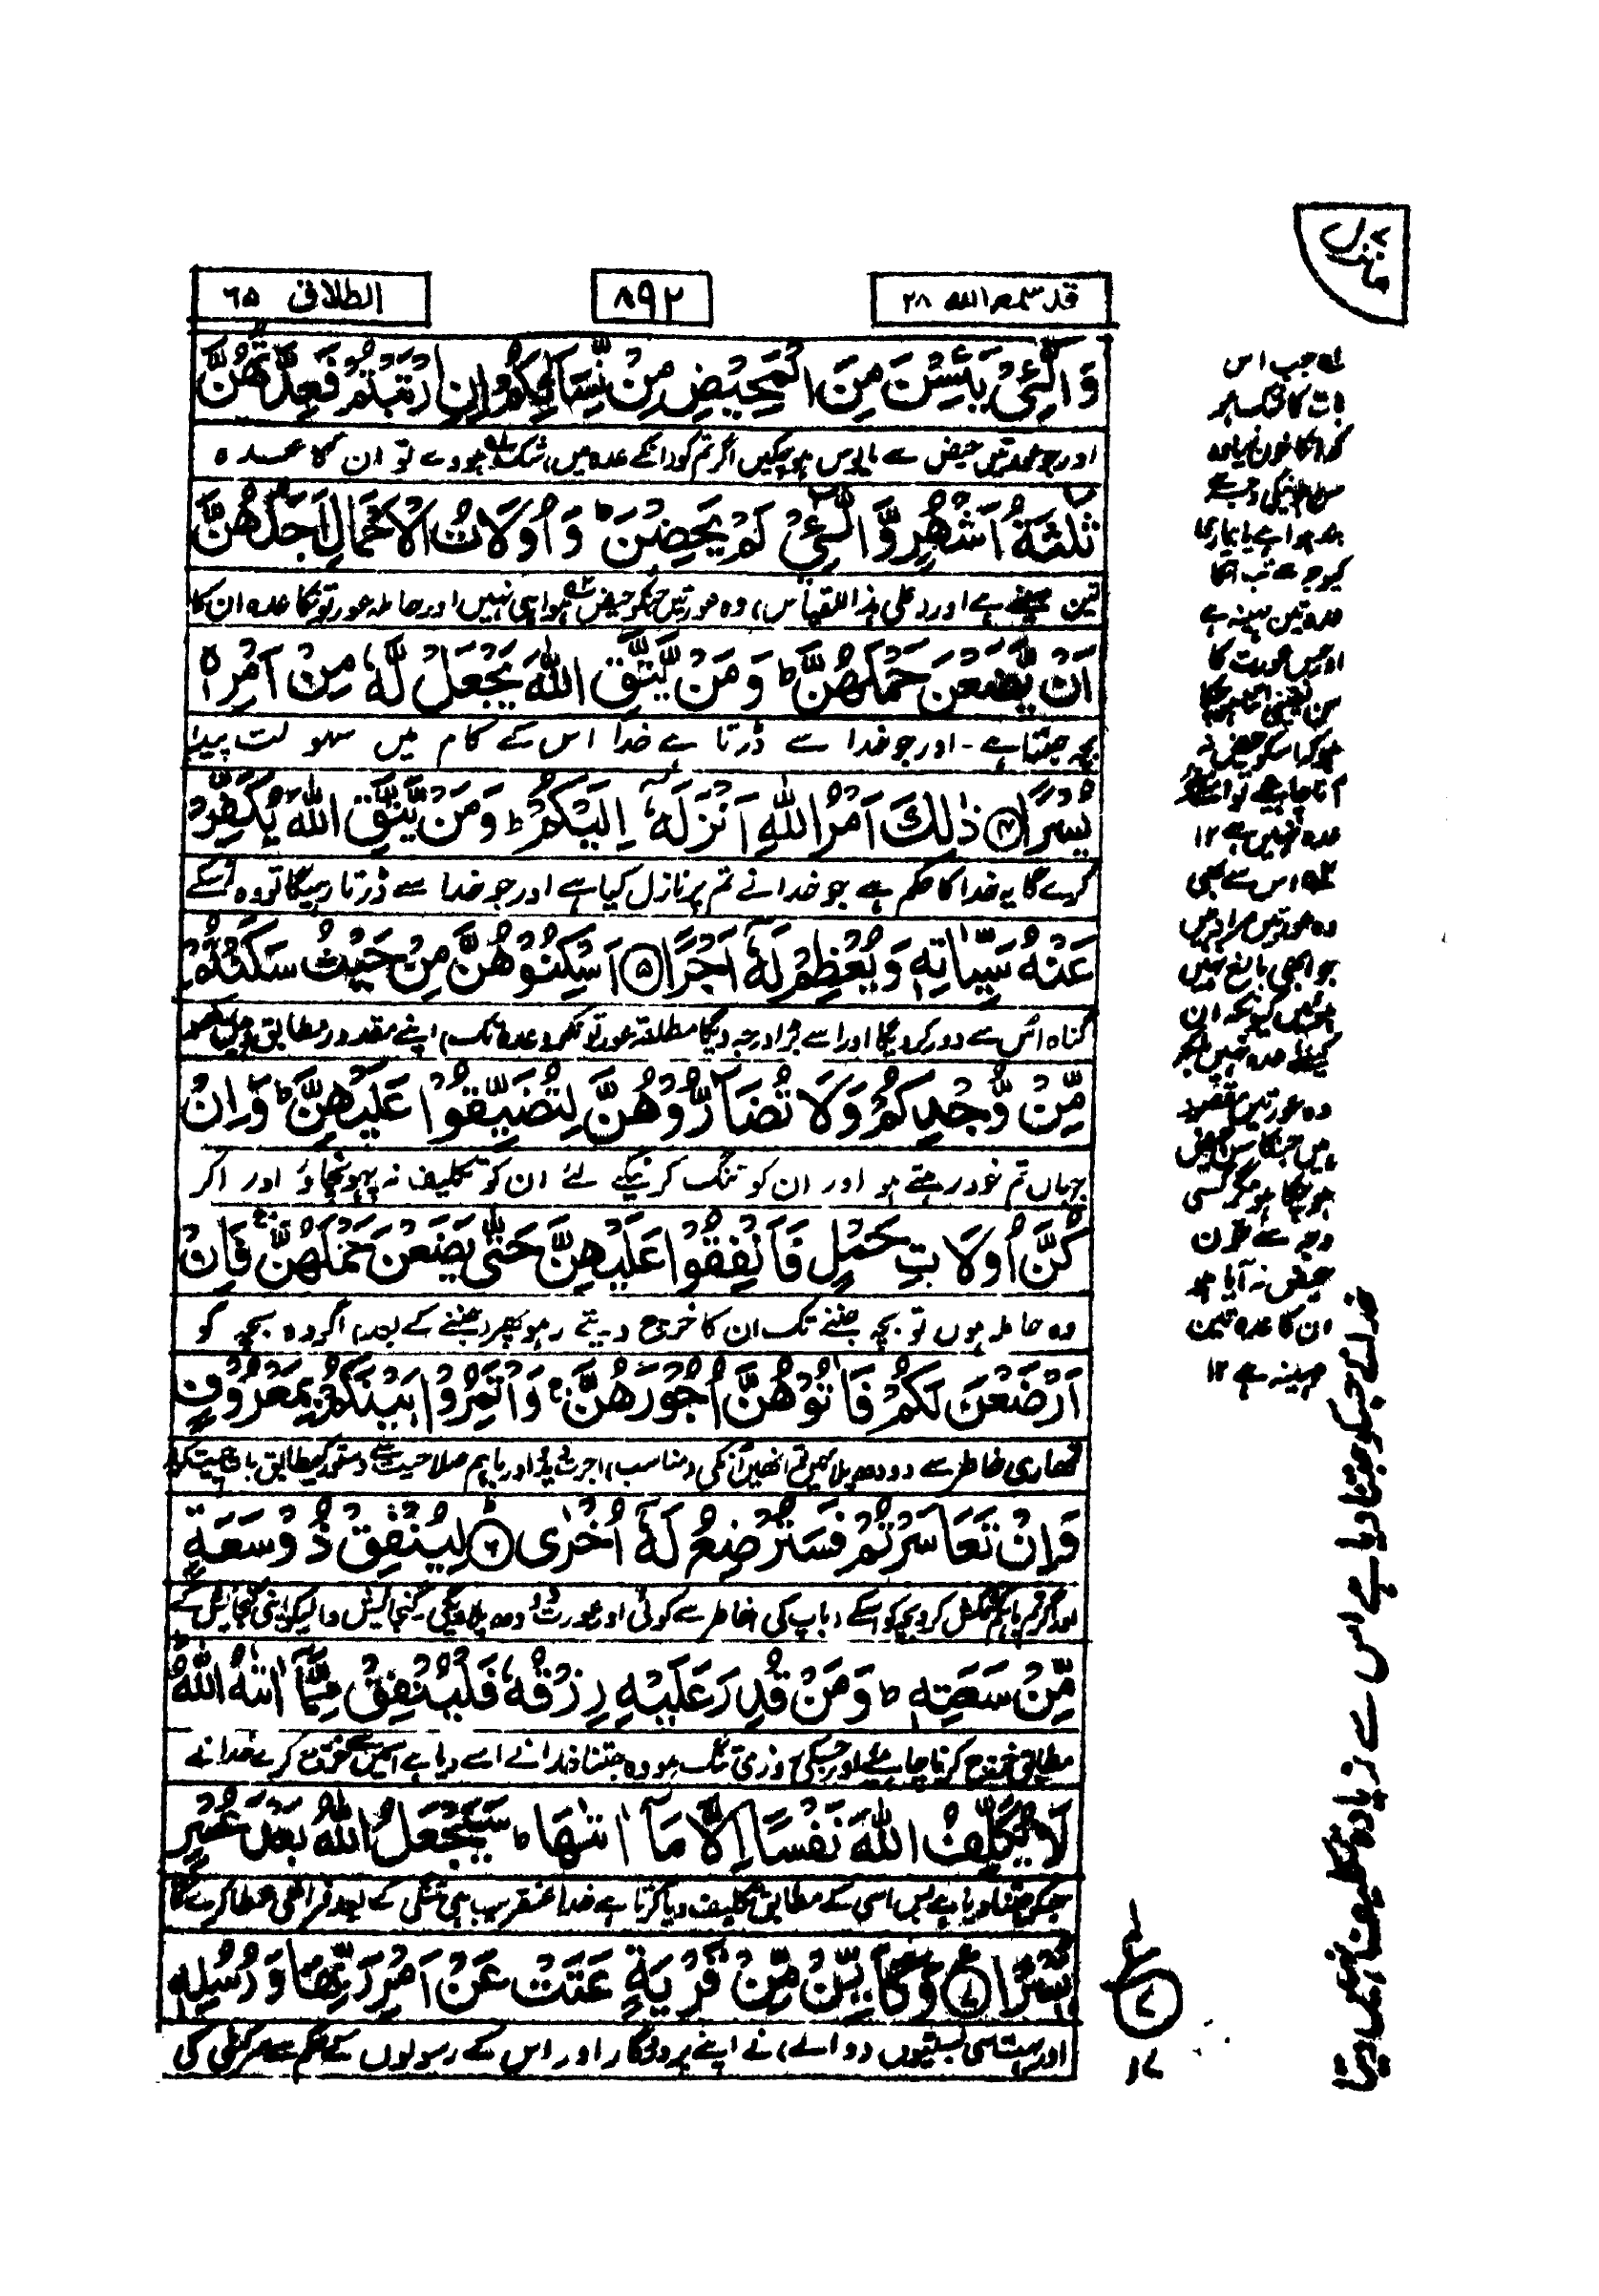 قد سمع الله ۲۸
۸۹۲
الطلاق ۶۵
منزل ۷
وَالّٰٓـِٔىْ يَئِسْنَ مِنَ الْمَحِيْضِ مِنْ نِّسَآئِكُمْ اِنِ ارْتَبْتُمْ فَعِدَّتُهُنَّ
اور جو عورتیں حیض سے مایوس ہو چکیں اگر تم کو (انکے عدہ میں) شک ہووے تو ان کا عدہ
ثَلٰثَةُ اَشْهُرٍ وَّالّٰٓـِٔىْ لَمْ يَحِضْنَ ؕ وَاُولَاتُ الْاَحْمَالِ اَجَلُهُنَّ
تین مہینے ہے اور (علی ہذا القیاس) وہ عورتیں جنکو حیض ہوا ہی نہیں اور حاملہ عورتونکا عدہ ان کا
اَنْ يَّضَعْنَ حَمْلَهُنَّ ؕ وَمَنْ يَّتَّقِ اللّٰهَ يَجْعَلْ لَّهٗ مِنْ اَمْرِهٖ
بچہ جننا ہے - اور جو خدا سے ڈرتا ہے خدا اس کے کام میں سہولت پیدا
يُسْرًا ﴿۴﴾ ذٰلِكَ اَمْرُ اللّٰهِ اَنْزَلَهٗٓ اِلَيْكُمْ ؕ وَمَنْ يَّتَّقِ اللّٰهَ يُكَفِّرْ
کرے گا یہ خدا کا حکم ہے جو خدا نے تم پر نازل کیا ہے اور جو خدا سے ڈرتا رہیگا تو وہ اسکے
عَنْهُ سَيِّاٰتِهٖ وَيُعْظِمْ لَهٗٓ اَجْرًا ﴿۵﴾ اَسْكِنُوْهُنَّ مِنْ حَيْثُ سَكَنْتُمْ
گناہ اس سے دور کردیگا اور اسے بڑا درجہ دیگا مطلقہ عورتونکو (عدہ تک) اپنے مقدور مطابق
مِّنْ وُّجْدِكُمْ وَلَا تُضَآرُّوْهُنَّ لِتُضَيِّقُوْا عَلَيْهِنَّ ؕ وَاِنْ
جہاں تم خود رہتے ہو اور ان کو تنگ کرنیکے لئے ان کو تکلیف نہ پہونچاؤ اور اگر
كُنَّ اُولَاتِ حَمْلٍ فَاَنْفِقُوْا عَلَيْهِنَّ حَتّٰى يَضَعْنَ حَمْلَهُنَّ ۚ فَاِنْ
وہ حاملہ ہوں تو بچہ جننے تک ان کا خرچ دیتے رہو پھر (جننے کے بعد) اگر وہ بچہ کو
اَرْضَعْنَ لَكُمْ فَاٰتُوْهُنَّ اُجُوْرَهُنَّ ۚ وَاْتَمِرُوْا بَيْنَكُمْ بِمَعْرُوْفٍ
تمھاری خاطر سے دودھ پلائیں تم انھیں انکی (مناسب) اجرت دو اور باہم صلاحیت سے دستور کیمطابق بات چیت کرو
وَاِنْ تَعَاسَرْتُمْ فَسَتُرْضِعُ لَهٗٓ اُخْرٰى ﴿۶﴾ لِيُنْفِقْ ذُوْ سَعَةٍ
اور اگر تم باہم کشمکش کرو تو بچہ کو اسکے (باپ کی) خاطر سے کوئی اور عورت دودھ پلادیگی گنجائش والیکو اپنی گنجائش کے
مِّنْ سَعَتِهٖ ؕ وَمَنْ قُدِرَ عَلَيْهِ رِزْقُهٗ فَلْيُنْفِقْ مِمَّآ اٰتٰىهُ اللّٰهُ
مطابق خرچ کرنا چاہئے اور جسکی روزی تنگ ہو وہ جتنا خدا نے اسے دیا ہے اسمیں سے خرچ کرے خدا نے
لَا يُكَلِّفُ اللّٰهُ نَفْسًا اِلَّا مَآ اٰتٰىهَا ؕ سَيَجْعَلُ اللّٰهُ بَعْدَ عُسْرٍ
جسکو جتنا دیا ہے بس اسی کے مطابق تکلیف دیا کرتا ہے خدا عنقریب ہی تنگی کے بعد فراخی عطا کرے گا
يُّسْرًا ﴿۷﴾ وَكَاَيِّنْ مِّنْ قَرْيَةٍ عَتَتْ عَنْ اَمْرِ رَبِّهَا وَرُسُلِهٖ
اور بہت سی بستیوں (والے) نے اپنے پروردگار اور اس کے رسولوں کے حکم سے سرکشی کی
جب اس
بات کا شک ہو
کہ انکا خون زیادہ
بند ہوا ہے یا بیماری
کیوجہ سے تب انکا
عدہ تین مہینہ ہے
اور جس عورت کا
سن یقینی اتنا ہو چکا
ہو کہ اسکو حیض نہ
آنا چاہیے تو اسکا
عدہ نہیں ہے ۱۲
اس سے بھی
وہ عورتیں مراد نہیں
جو ابھی بالغ نہیں
ہوئیں کیونکہ ان
کیلئے عدہ نہیں بلکہ
وہ عورتیں مقصود
ہیں جنکا سن حیض
ہو چکا ہو مگر کسی
وجہ سے خون
حیض نہ آیا ہو
ان کا عدہ تین
مہینہ ہے ۱۲
خدا نے جسکو جتنا دیا ہے اس سے زیادہ تکلیف نہیں دیتا
ع
۷
۱۷